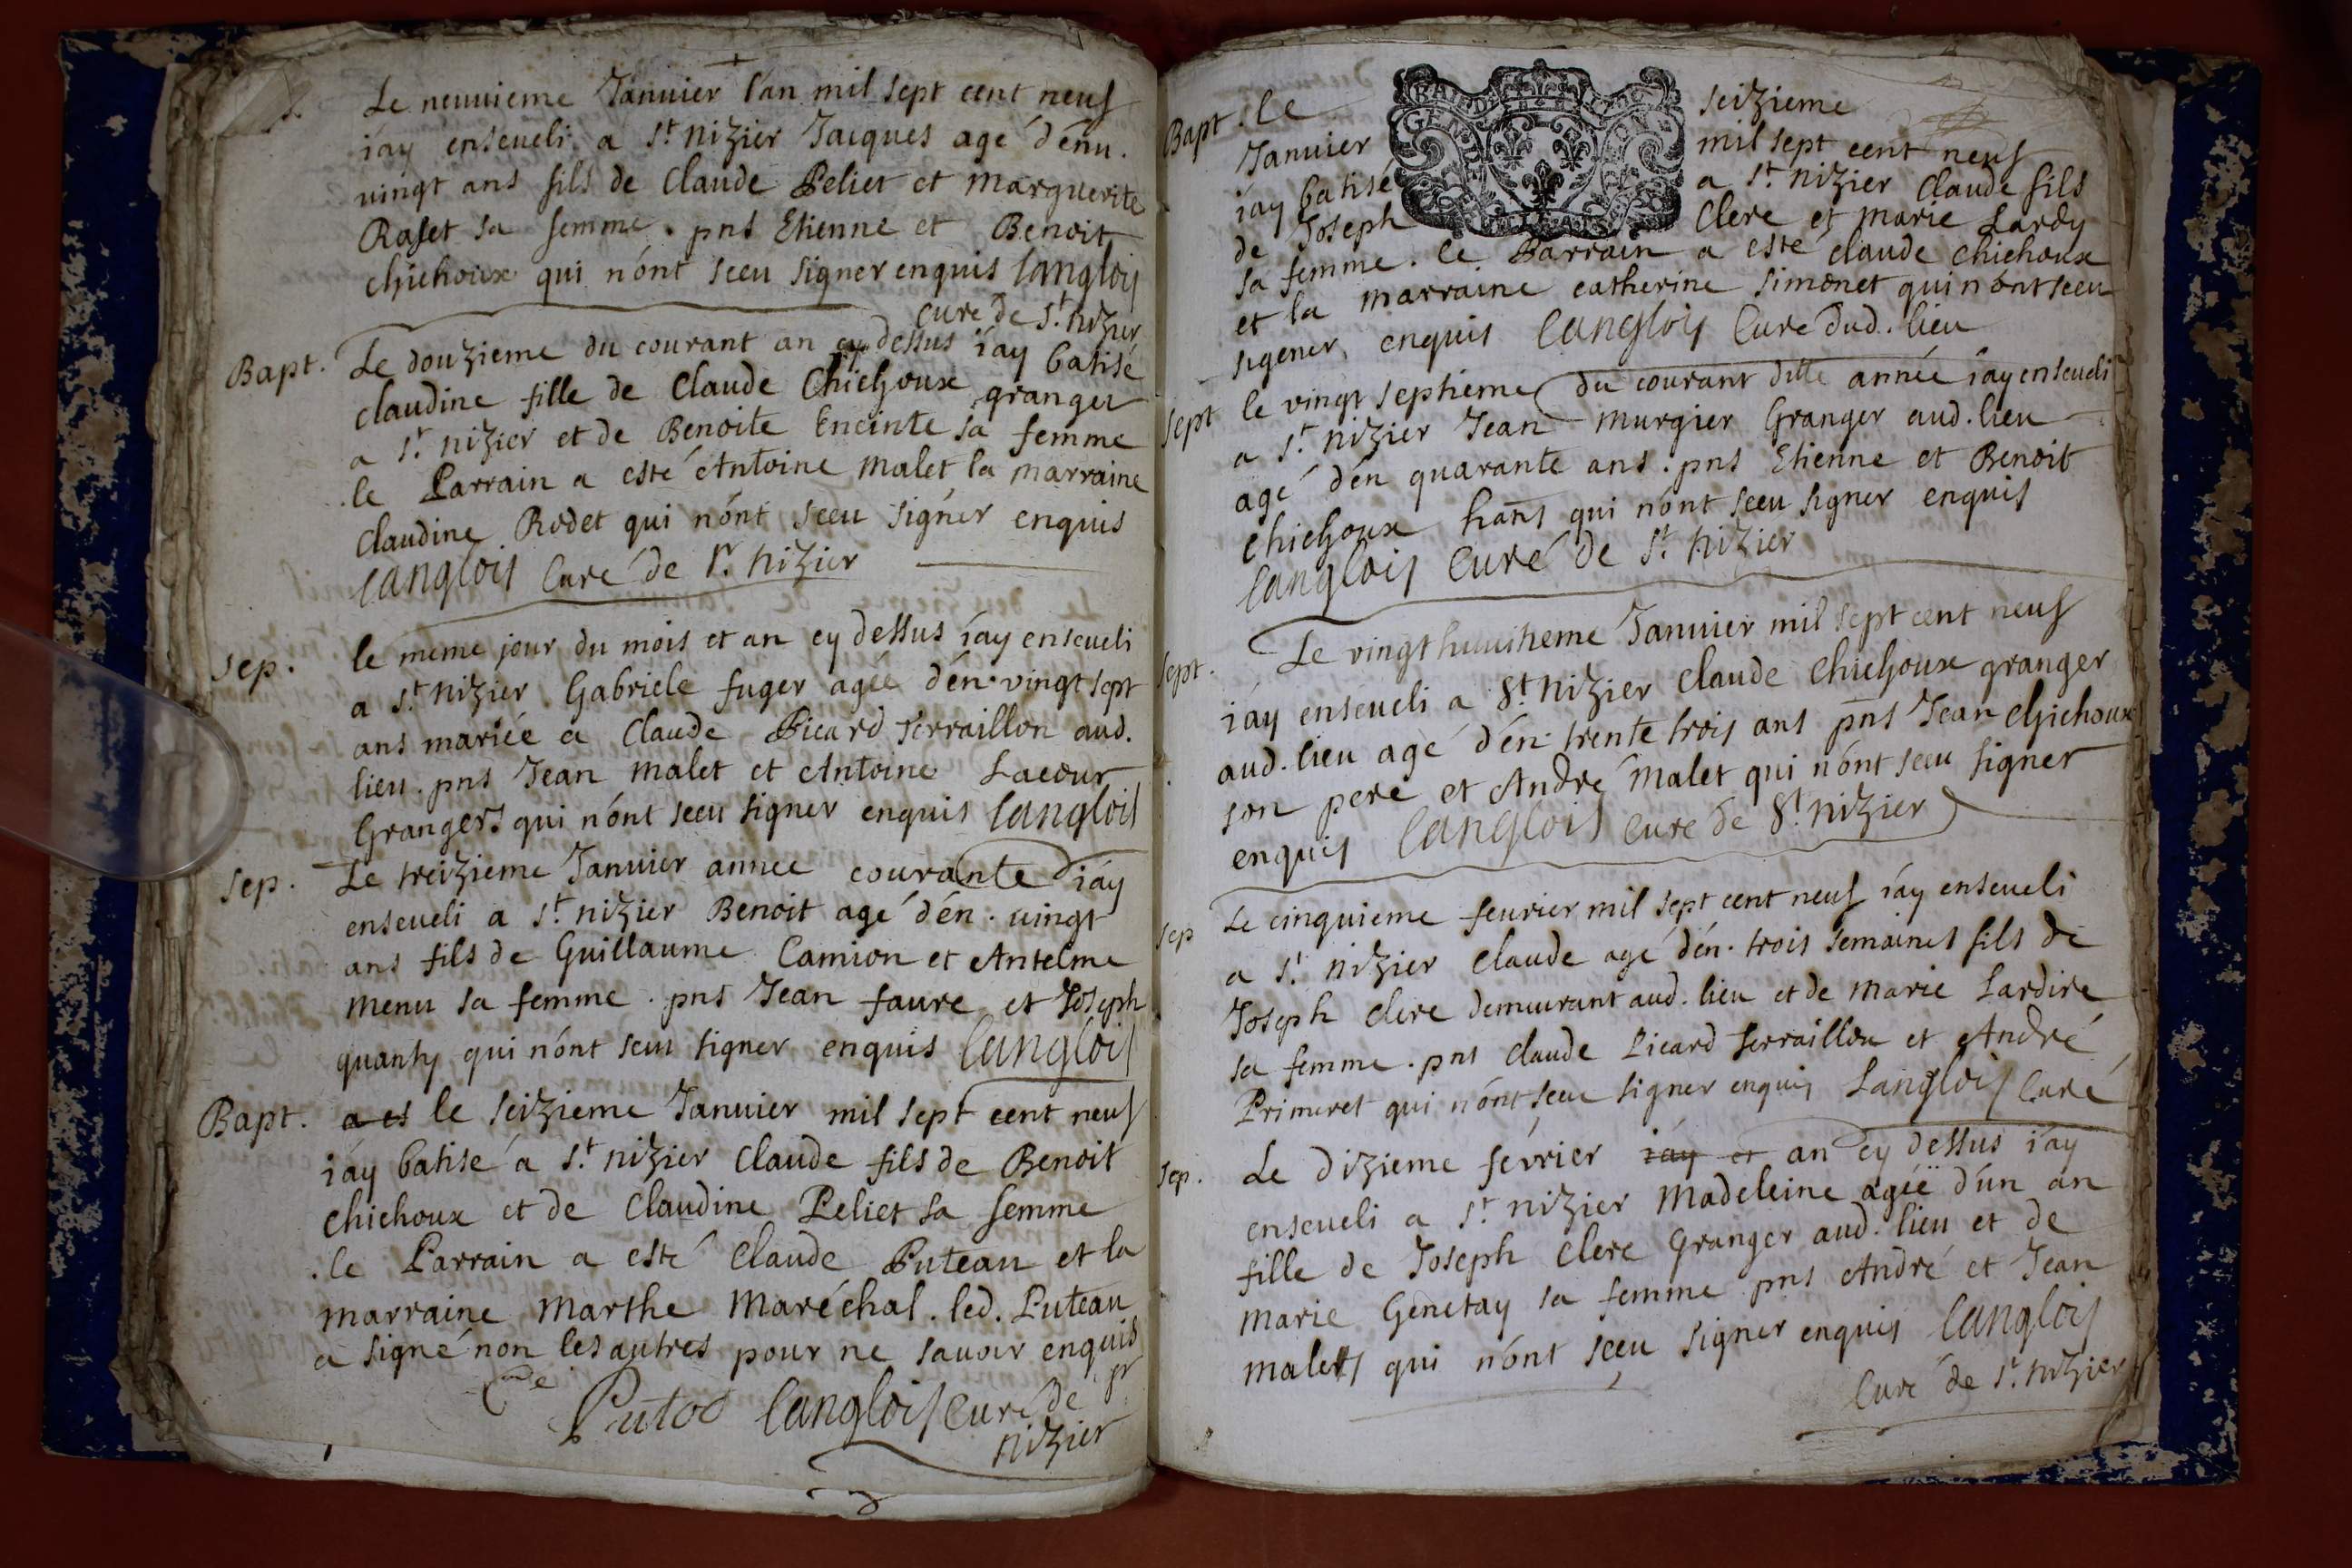 Le neuuieme Januier l'an mil sept cent neuf
i'ay enseueli a St. nizier Jacques agé d'énu.
uingt ans fils de Claude Peliet et Marguerite
Raset sa femme. pns Etienne et Benoit
chichoux qui n'ónt sceu signer enquis Langlois
curé de St. nizier
Bapt. Le douzieme du courant an cy dessus i'ay batisé
claudine fille de Claude Chichoux granger
a St. nizier et de Benoite Encinte sa femme
.le Parrain a esté Antoine malet la marraine
Claudine Rodet qui n'ónt sceu signér enquis
Langlois Curé de St. nizier
Sep. le meme jour du mois et an cy dessus i'ay enseueli
a St. nizier Gabriele fuger agée d'én. vingt sept
ans mariée a Claude Picard serraillon aud.
lieu. pns Jean malet et Antoine Lacour
Grangers qui n'ónt sceu signer enquis Langlois
Sep. Le treizieme Januier annee courante i'ay
enseueli a St. nizier Benoit agé d'én. uingt
ans fils de Guillaume Camion et Antelme
menu sa femme. pns Jean faure et Joseph
quanty qui n'ónt sceu signer enquis Langlois
Bapt. a es le seizieme Januier mil sept cent neuf
i'ay batisé a St. nizier Claude fils de Benoit
Chichoux et de Claudine Peliet sa femme
.le Parrain a esté Claude Puteau et la
marraine Marthe Maréchal. led. Puteau
a signé non les autres pour ne sauoir enquis
Cde Putod Langlois curé de St
nizier
Bapt. le seizieme
Januier mil sept cent neuf
i'ay batisé a St. nizier Claude fils
de Joseph Clerc et marie Lardy
sa femme. le Parrain a esté claude chichoux
et la marraine catherine simonet qui n'ónt sceu
sigener enquis Langlois Curé dud. lieu
Sept le vingt septieme du courant dite année i'ay enseueli
a St. nizier Jean murgier Granger aud. lieu
agé d'én quarante ans. pns Etienne et Benoit
chichoux hans qui n'ónt sceu signer enquis
Langlois Curé de St. nizier
Sept. Le vingt huitieme Januier mil sept cent neuf
i'ay enseueli a St. nizier Claude Chichoux granger
aud. lieu agé d'én. trente trois ans pns Jean Chichoux
son pere et André malet qui n'ónt sceu signer
enquis Langlois curé de St. nizier
Sep Le cinquieme feurier mil sept cent neuf i'ay enseueli
a St. nizier Claude agé d'én. trois semaines fils de
Joseph clerc demeurant aud. lieu et de marie Lardire
sa femme. pns claude Picard serraillon et André
Primeret qui n'ónt sceu signer enquis Langlois Curé
Sep. Le dizieme février i'ay et an cy dessus i'ay
enseueli a St. nizier Madeleine agée d'un an
fille de Joseph Clerc Granger aud. lieu et de
marie Genetay sa femme pns André et Jean
malets qui n'ónt sceu signer enquis Langlois
Curé de St. nizier